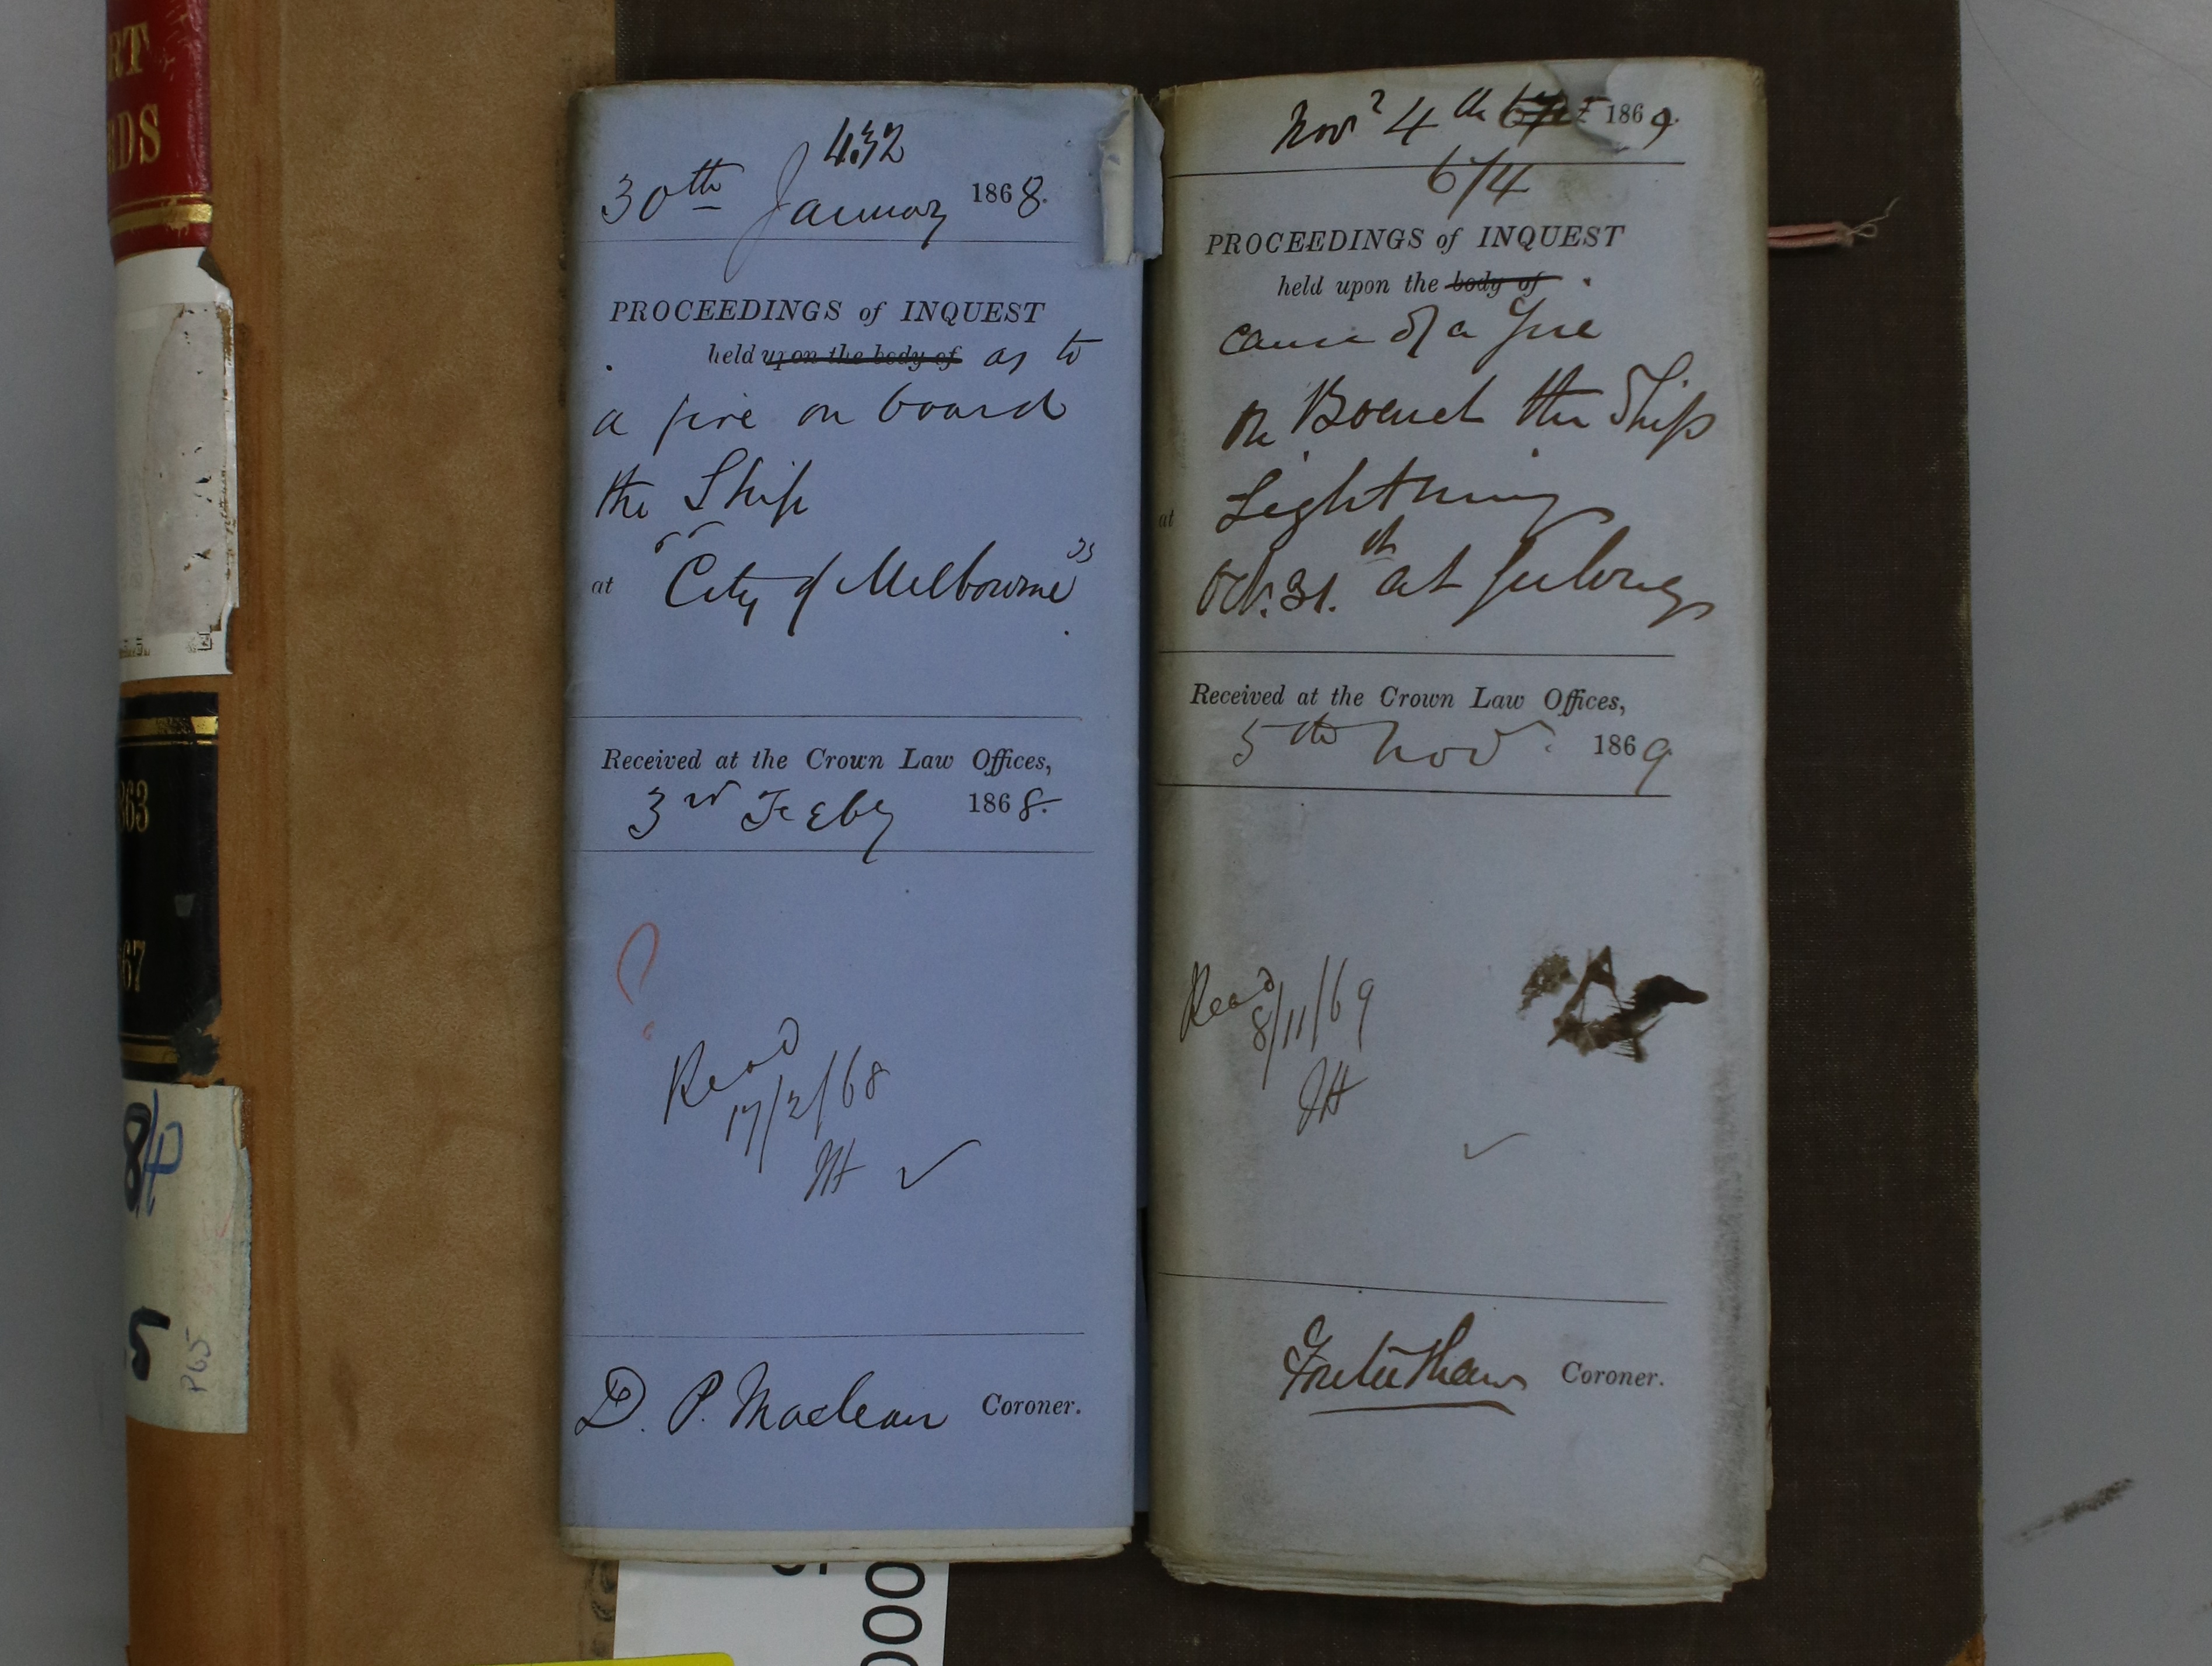 RT
RDS
363
67
84
5
P65
432
30th January 1868.
PROCEEDINGS of INQUEST
held upon the body of as to
a fire on board
the Ship
at "City of Melbourne"
Received at the Crown Law Offices,
3rd Feby 1868.
?
Read
17/2/68
D. P. Maclean Coroner.
000
Novr 4th 1869.
674
PROCEEDINGS of INQUEST
held upon the body of
cause of a Fire
on Board the Ship
at Lightning
Oct. 31.st at Geelong
Received at the Crown Law Offices,
5th Nov. 1869
Read
8/11/69
Coroner.